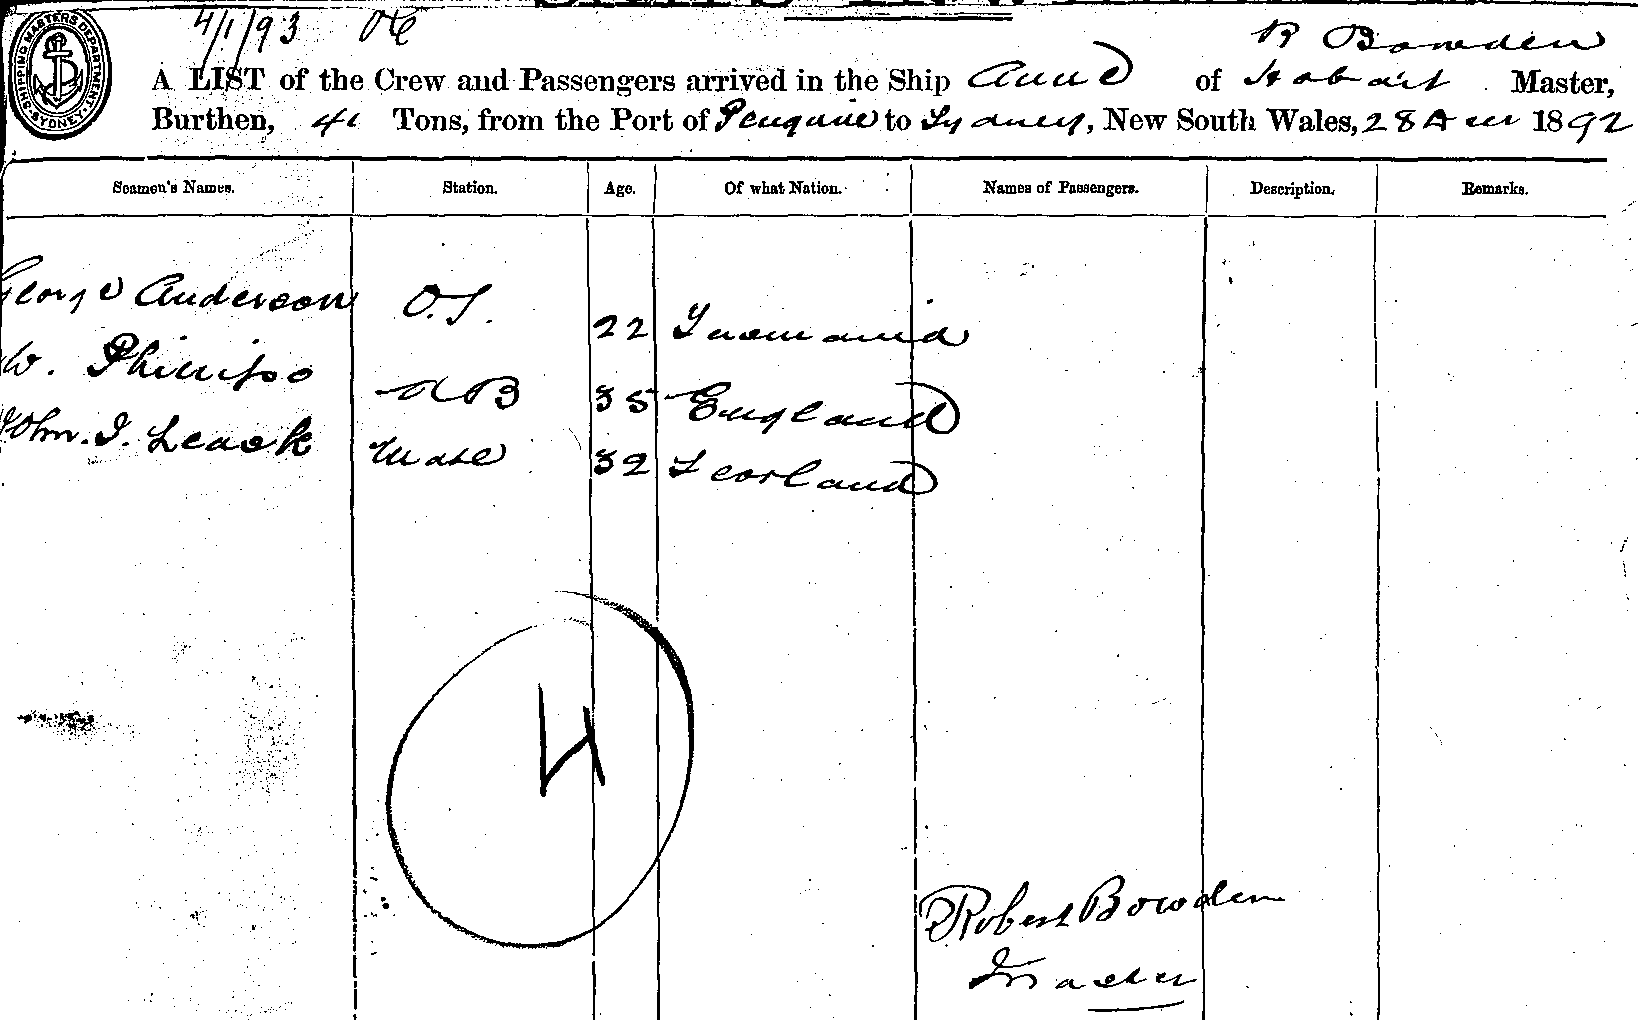 SHIPPING MASTERS DEPARTMENT · SYDNEY ·
4/1/93
R Bowden
A LIST of the Crew and Passengers arrived in the Ship Anne of Hobart Master,
Burthen, 41 Tons, from the Port of Penguin to Sydney, New South Wales, 28 1892
Seamen's Names. Station. Age. Of what Nation. Names of Passengers. Description. Remarks.
George Anderson O.S. 22 Tasmania
W. Phillips AB 35 England
John. I. Leack Mate 32 Scotland
4
Robert Bowden
Master